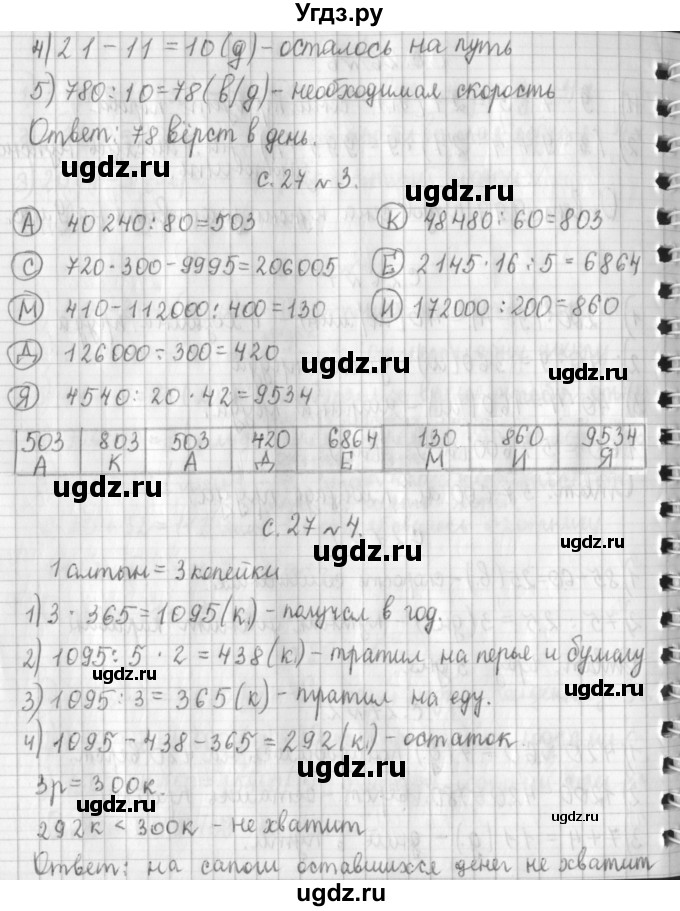 Угдз.ру
4) 21 - 11 = 10 (д) - осталось на путь
5) 780 : 10 = 78 (в/д) - необходимая скорость
Ответ: 78 вёрст в день.
ugdz.ru
ugdz.ru
с. 27 № 3.
А 40 240 : 80 = 503
К 48 480 : 60 = 803
С 720 · 300 - 9995 = 206005
Е 2145 · 16 : 5 = 6864
ugdz.ru
ugdz.ru
М 410 - 112000 : 400 = 130
И 172000 : 200 = 860
Д 126 000 : 300 = 420
ugdz.ru
ugdz.ru
Я 4540 : 20 · 42 = 9534
503 803 503 420 6864 130 860 9534
А К А Д Е М И Я
ugdz.ru
ugdz.ru
с. 27 № 4.
1 алтын = 3 копейки
ugdz.ru
1) 3 · 365 = 1095 (к.) - получал в год.
2) 1095 : 5 · 2 = 438 (к.) - тратил на перье и бумагу
ugdz.ru
ugdz.ru
3) 1095 : 3 = 365 (к) - тратил на еду.
4) 1095 - 438 - 365 = 292 (к.) - остаток
ugdz.ru
3р = 300к.
292к < 300к - не хватит
ugdz.ru
Ответ: на сапоги оставшихся денег не хватит
ugdz.ru